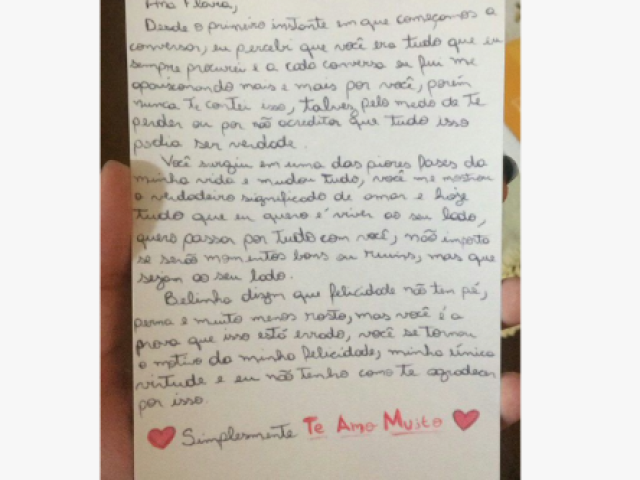 Ana Flávia,
Desde o primeiro instante em que começamos a
conversar, eu percebi que você era tudo que eu
sempre procurei e a cada conversa eu fui me
apaixonando mais e mais por você, porém
nunca te contei isso, talvez pelo medo de te
perder ou por não acreditar que tudo isso
podia ser verdade.
Você surgiu em uma das piores fases da
minha vida e mudou tudo, você me mostrou
o verdadeiro significado de amar e hoje
tudo que eu quero é viver ao seu lado,
quero passar por tudo com você, não importa
se serão momentos bons ou ruins, mas que
sejam ao seu lado.
Belinha dizem que felicidade não tem pé,
perna e muito menos rosto, mas você é a
prova que isso está errado, você se tornou
o motivo da minha felicidade, minha única
virtude e eu não tenho como te agradecer
por isso.
Simplesmente Te Amo Muito